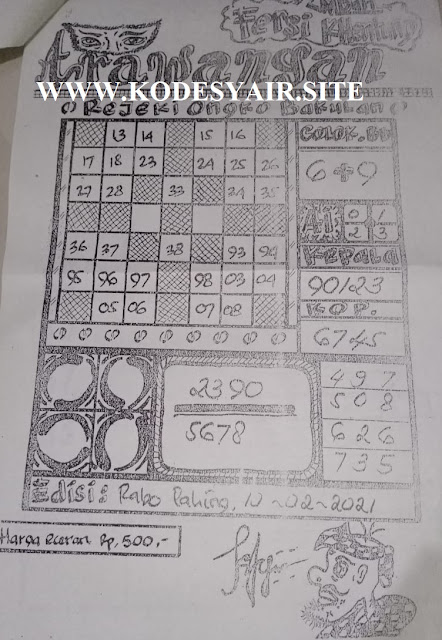 Fersi
trawangan
WWW.KODESYAIR.SITE
Rejeki Ongko Bakulan
13 14 15 16
COLOK.BB
17 18 23 24 25 26
6+9
27 28 33 34 35
AI 0 1
2 3
36 37 38 93 94
KEPALA
95 96 97 98 03 04
90123
05 06 07 08
KOP.
6745
2390
5678
497
508
626
735
Edisi: Rabo Pahing, 10-02-2021
Harga Eceran Rp, 500,-